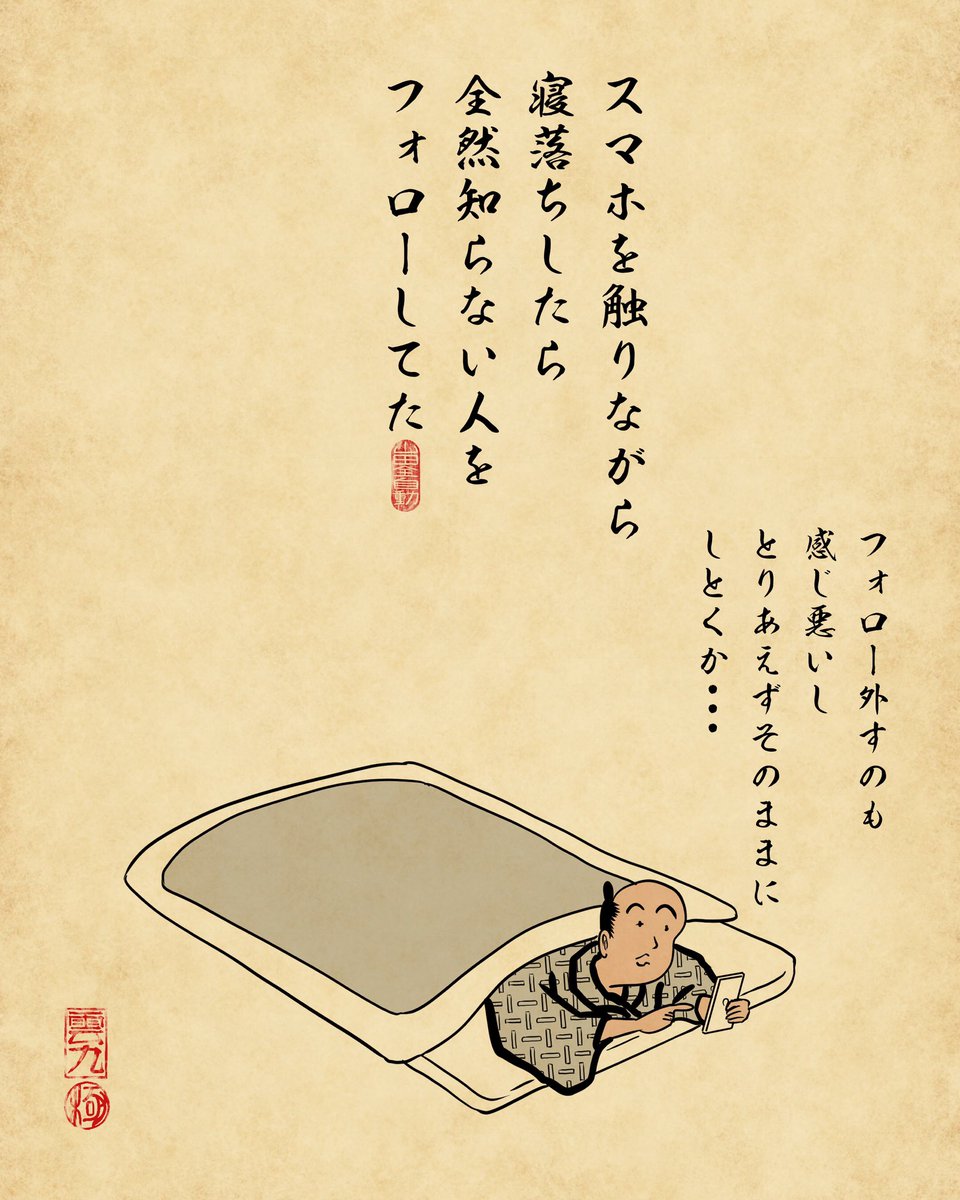 スマホを触りながら
寝落ちしたら
全然知らない人を
フォローしてた
フォロー外すのも
感じ悪いし
とりあえずそのままに
しとくか・・・